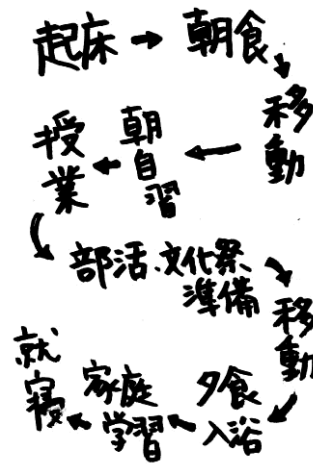 起床→朝食
移動
朝自習
授業
部活、文化祭
準備
移動
夕食
入浴
家庭
学習
就寝